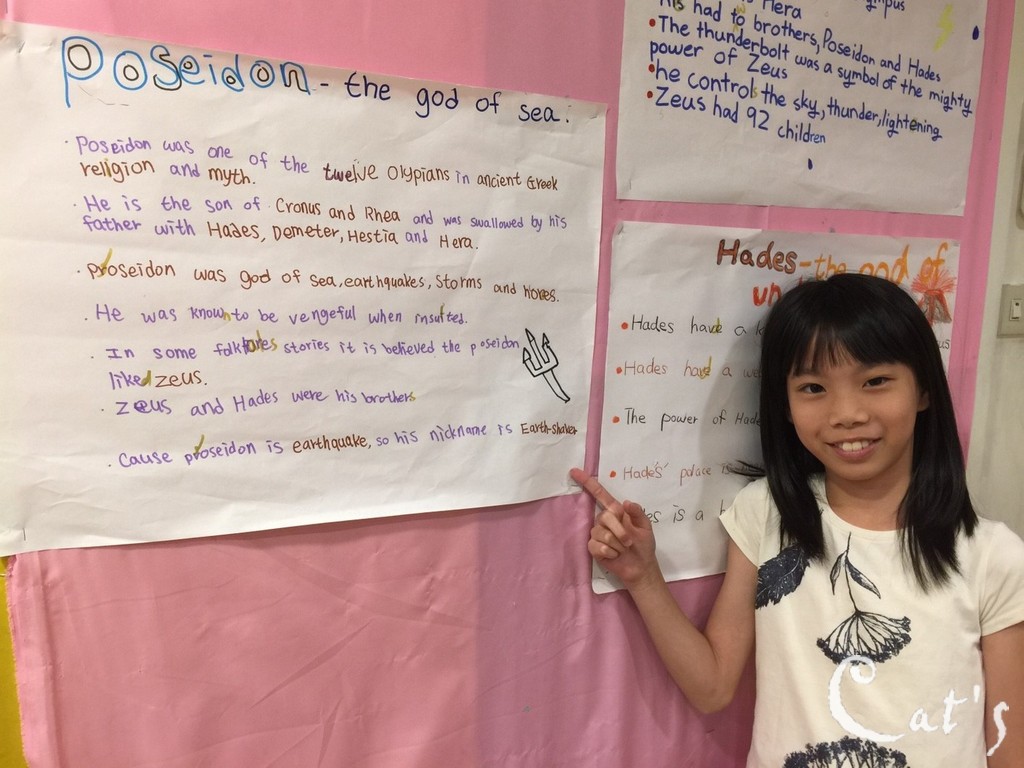 Poseidon - the god of sea.
· Poseidon was one of the twelve Olypians in ancient Greek
religion and myth.
· He is the son of Cronus and Rhea and was swallowed by his
father with Hades, Demeter, Hestia and Hera.
· Poseidon was god of sea, earthquakes, storms and
· He was known to be vengeful when insulted.
· In some folktales stories it is believed the poseidon
liked zeus.
· Zeus and Hades were his brothers
· Cause poseidon is earthquake, so his nickname is Earth-shaker
Hera
his had to brothers, Poseidon and Hades
• The thunderbolt was a symbol of the mighty
power of Zeus
• he controls the sky, thunder, lightening
• Zeus had 92 children
Hades - the god of
un
• Hades have a
• Hades have a
• The power of Hade
• Hade's' palace is
is a
Cat's